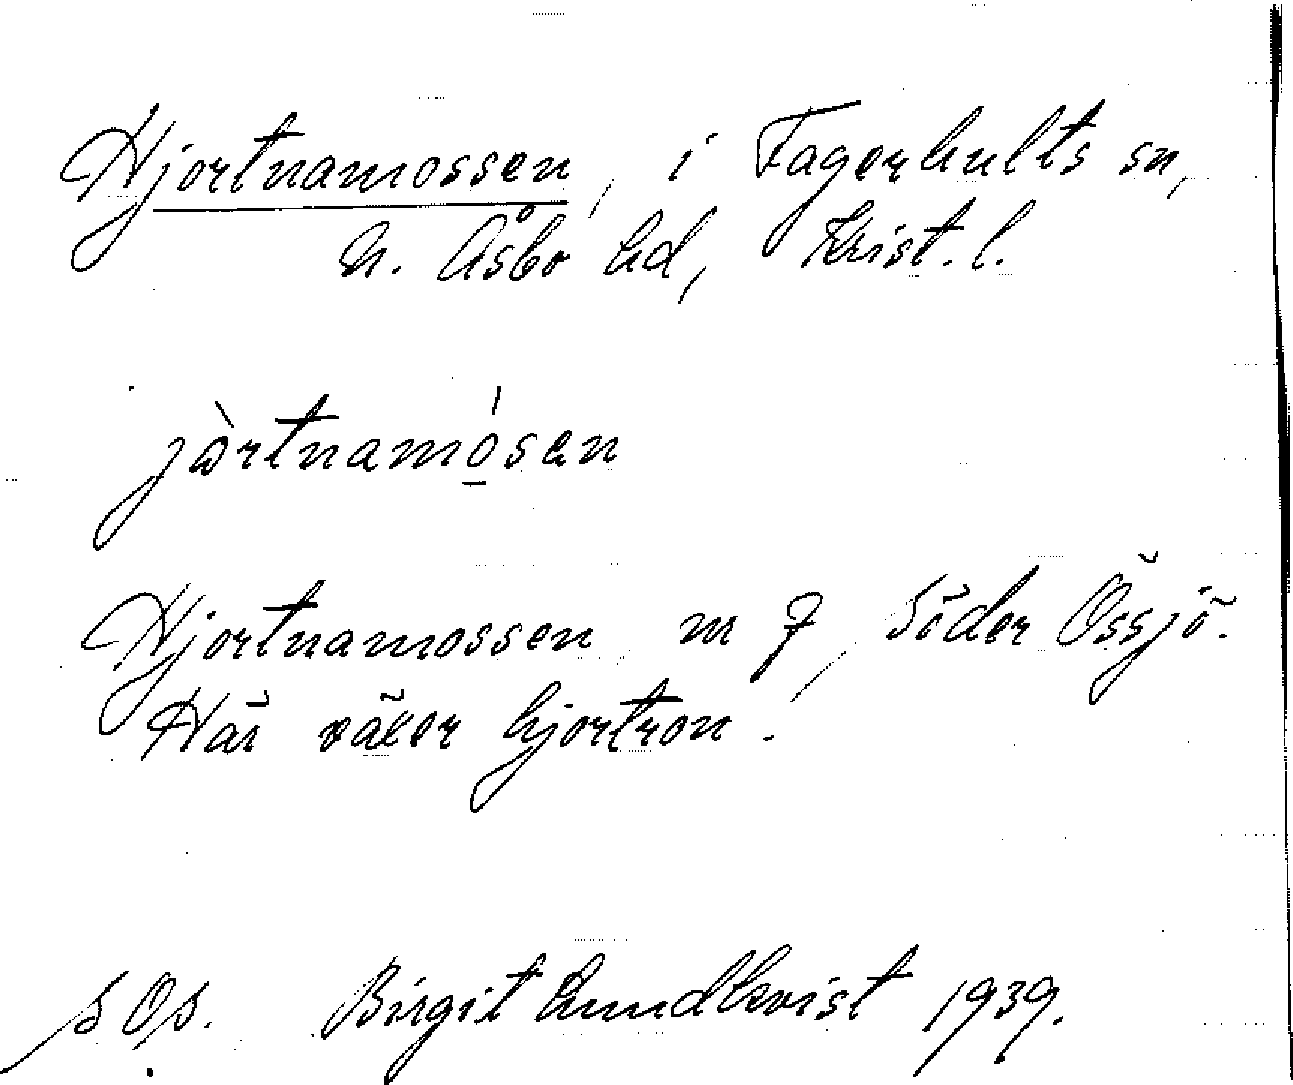 Hjortnamossen, i Fagerhults sn,
N. Åsbo hd, Krist. l.
jòrtnamó̱sən
Hjortnamossen m 7, Söder Össjö.
Här växer hjortron.
S Os. Birgit Lundkvist 1939.